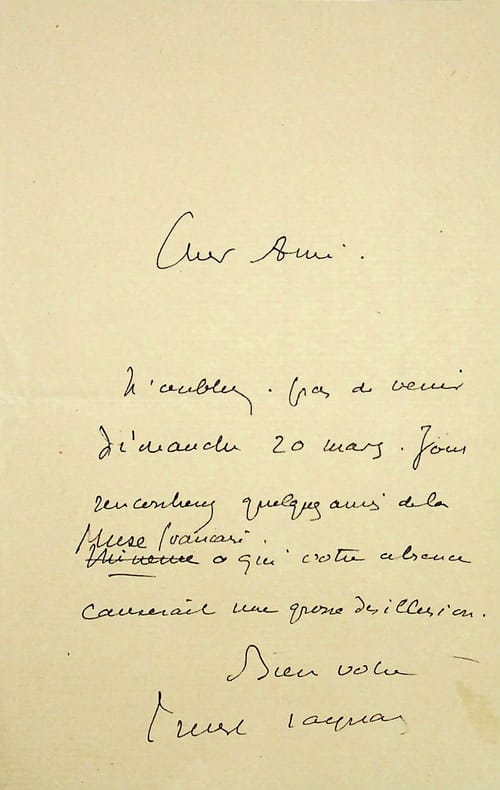 Cher Ami.
N'oubliez. pas de venir
Dimanche 20 mars. Vous
rencontrerez quelques amis de la
Muse Française.
Minerve a qui votre absence
causerait une grosse désillusion.
Bien votre
Ernest Raynaud